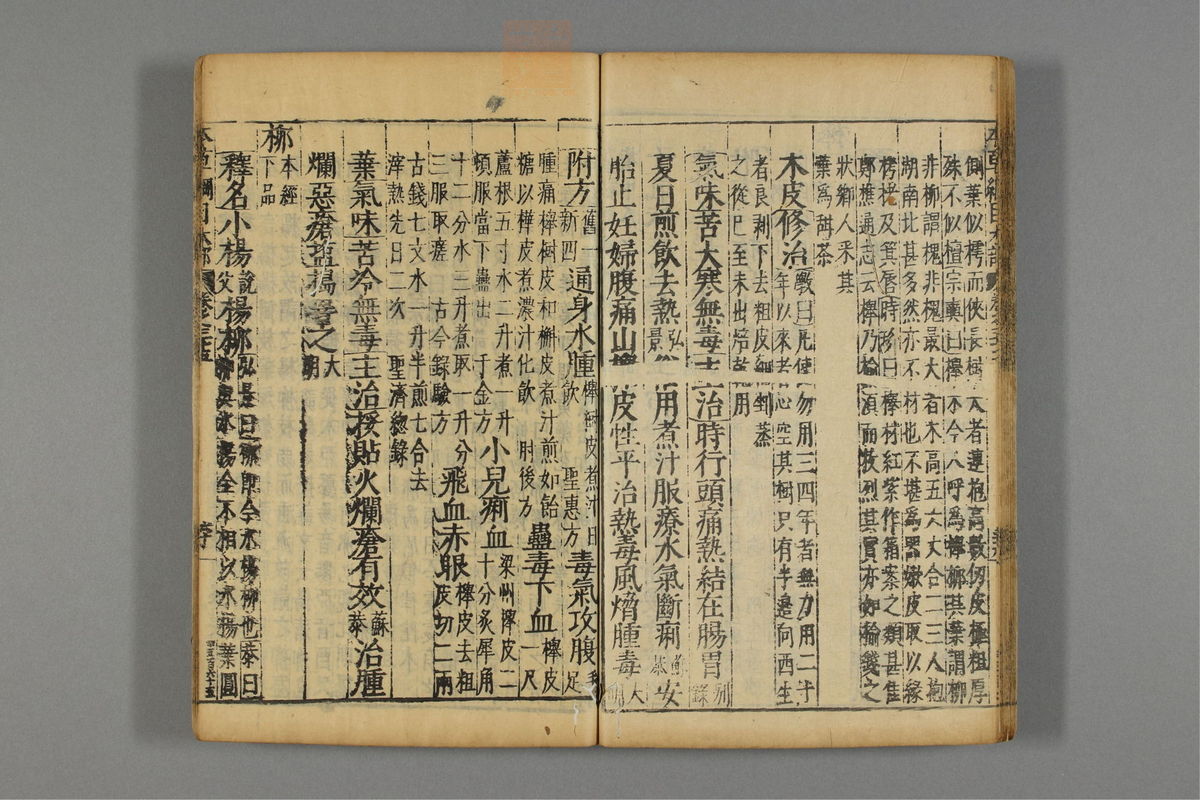 側葉似樗而狹長樹大者連抱高數仞皮極粗厚
殊不似檀宗奭曰櫸木今人呼為櫸柳其葉謂柳
非柳謂槐非槐最大者木高五六丈合二三人抱
湖南北甚多然亦不材也不堪為器嫩皮取以緣
栲栳及箕唇時珍曰櫸材紅紫作箱案之類甚佳
鄭樵通志云櫸乃榆類而枚烈其實亦如榆錢之
狀鄉人采其
葉為甜茶
木皮修治斅曰凡使勿用三四年者無力用二十
年以來者心空其樹只有半邊向西生
者良剥下去粗皮細剉蒸
之從巳至未出焙乾用
氣味苦大寒無毒主治時行頭痛熱結在腸胃别錄
夏日煎飲去熱弘景 用煮汁服療水氣斷痢 安
胎止妊婦腹痛山櫸皮性平治熱毒風熁腫毒大明
附方舊一新四通身水腫櫸樹皮煮汁日飲聖惠方毒氣攻腹手足
腫痛櫸樹皮和槲皮煮汁煎如飴
糖以樺皮煮濃汁化飲肘後方蠱毒下血櫸皮一尺
蘆根五寸水二升煮一升
頓服當下蠱出千金方小兒痢血梁州櫸皮二
十分炙犀角
十二分水三升煮取一升分
三服取瘥古今錄驗方飛血赤眼櫸皮去粗
皮切二兩
古錢七文水一升半煎七合去
滓熱洗日二次聖濟總錄
葉氣味苦冷無毒主治挼貼火爛瘡有效蘇恭治腫
爛惡瘡鹽搗罯之大明
柳本經下品
釋名小楊說文楊柳弘景曰柳即今水楊柳也恭曰
柳與水楊全不相似水楊葉圓